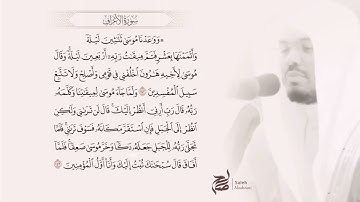 سورة الأعراف
۞ وَوَٰعَدْنَا مُوسَىٰ ثَلَٰثِينَ لَيْلَةً
وَأَتْمَمْنَٰهَا بِعَشْرٍ فَتَمَّ مِيقَٰتُ رَبِّهِۦٓ أَرْبَعِينَ لَيْلَةً ۚ وَقَالَ
مُوسَىٰ لِأَخِيهِ هَٰرُونَ ٱخْلُفْنِى فِى قَوْمِى وَأَصْلِحْ وَلَا تَتَّبِعْ
سَبِيلَ ٱلْمُفْسِدِينَ ۝ وَلَمَّا جَآءَ مُوسَىٰ لِمِيقَٰتِنَا وَكَلَّمَهُۥ
رَبُّهُۥ قَالَ رَبِّ أَرِنِىٓ أَنظُرْ إِلَيْكَ ۚ قَالَ لَن تَرَىٰنِى وَلَٰكِنِ
ٱنظُرْ إِلَى ٱلْجَبَلِ فَإِنِ ٱسْتَقَرَّ مَكَانَهُۥ فَسَوْفَ تَرَىٰنِى ۚ فَلَمَّا
تَجَلَّىٰ رَبُّهُۥ لِلْجَبَلِ جَعَلَهُۥ دَكًّا وَخَرَّ مُوسَىٰ صَعِقًا ۚ فَلَمَّآ
أَفَاقَ قَالَ سُبْحَٰنَكَ تُبْتُ إِلَيْكَ وَأَنَا۠ أَوَّلُ ٱلْمُؤْمِنِينَ ۝